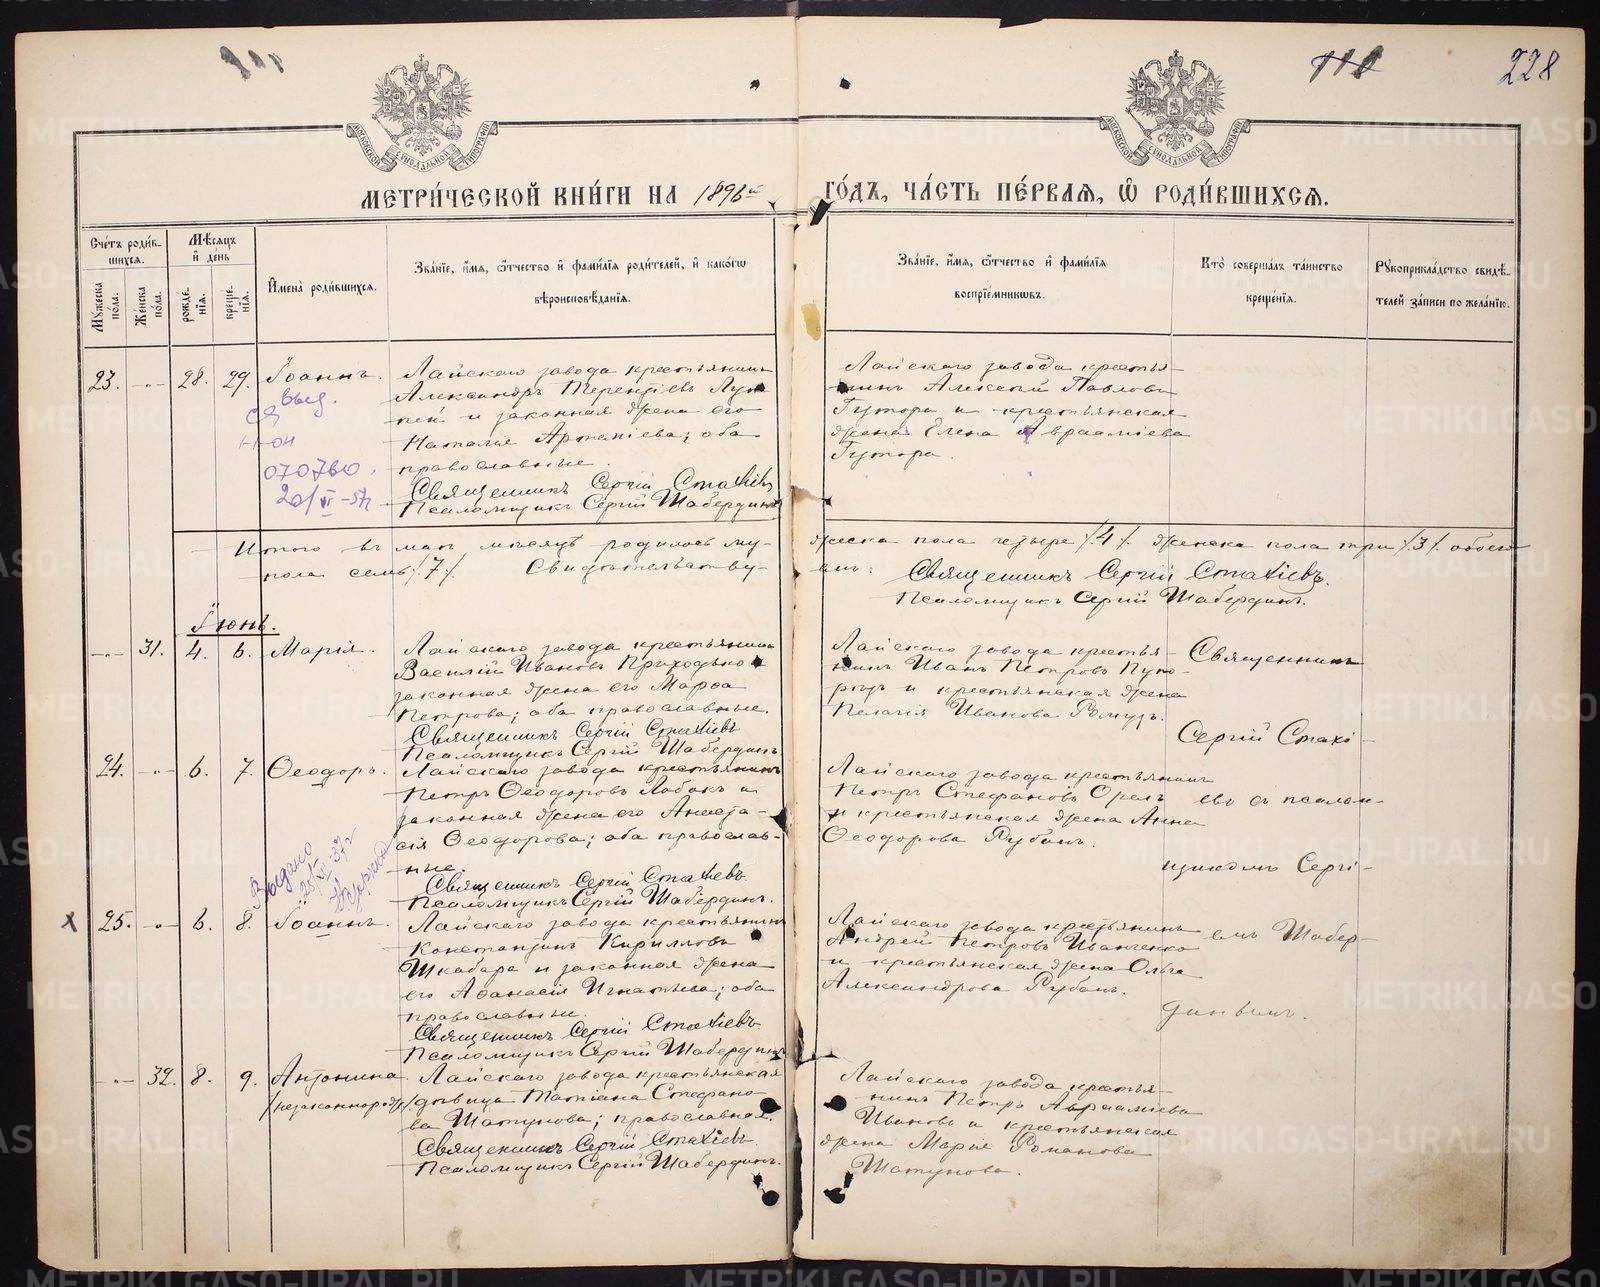 118
228
МОСКОВСКОЙ СѴНОДАЛЬНОЙ ТИПОГРАФІИ
МОСКОВСКОЙ СѴНОДАЛЬНОЙ ТИПОГРАФІИ
МЕТРИ́ЧЕСКОЙ КНИ́ГИ НА 1896й ГО́ДЪ, ЧА́СТЬ ПЕ́РВАЯ, Ѡ РОДИ́ВШИХСЯ.
Сче́тъ роди́в-
шихся.
Мѣ́сяцъ
и҆ де́нь
Мꙋ́жеска по́ла.
Же́нска по́ла.
рожде́-
нїя.
креще́-
нїя.
И҆мена̀ роди́вшихся.
Зва́нїе, и҆́мя, ѻ҆́тчество и҆ фами́лїя роди́телей, и҆ како́гѡ
вѣроисповѣ́данїя.
Зва́нїе, и҆́мя, ѻ҆́тчество и҆ фами́лїя
воспрїе́мникѡвъ.
Кто̀ соверша́лъ та́инство
креще́нїя.
Рꙋкоприкла́дство свидѣ́-
телей за́писи по жела́нїю.
23. -„- 28. 29. Іоаннъ.
выд.
ся
070760.
20/VI -57г
Лайскаго завода крестьянинъ
Александръ Терентіевъ
и законная жена его
Наталія Артеміева; оба
православные.
Священникъ Сергій Стахіевъ
Псаломщикъ Сергій Шабердинъ
Лайскаго завода крестья-
нинъ Алексѣй Павловъ
Гутора и крестьянская
жена Елена Авраамиева
Гутора.
Итого въ маѣ мѣсяцѣ родилось му-
жеска пола четыре /4/. женска пола три /3/. обоего
пола семь /7/. Свидѣтельству-
емъ:
Священникъ Сергій Стахіевъ.
Псаломщикъ Сергій Шабердинъ.
Іюнь.
-„- 31. 4. 6. Марія.
Лайскаго завода крестьянинъ
Василій Ивановъ Приходько и
законная жена его Марѳа
Петрова; оба православные.
Священникъ Сергій Стахіевъ
Псаломщикъ Сергій Шабердинъ
Лайскаго завода крестья-
нинъ Иванъ Петровъ
и крестьянская жена
Пелагія Иванова
24. -„- 6. 7. Ѳеодоръ.
Выдано
Лайскаго завода крестьянинъ
Петръ Ѳеодоровъ Лобокъ и
законная жена его Анаста-
сія Ѳеодорова; оба православ-
ные.
Священникъ Сергій Стахіевъ.
Псаломщикъ Сергій Шабердинъ.
Лайскаго завода крестьянинъ
Петръ Стефановъ Орелъ
и крестьянская жена Анна
Ѳеодорова Рубанъ.
х 25. -„- 6. 8. Іоаннъ.
Лайскаго завода крестьянинъ
Константинъ Кирилловъ
Шкабара и законная жена
его Аѳанасія Игнатьева; оба
православные.
Священникъ Сергій Стахіевъ
Псаломщикъ Сергій Шабердинъ
Лайскаго завода крестьянинъ
Андрей Петровъ Иванченко
и крестьянская жена Ольга
Александрова Рубанъ.
-„- 32. 8. 9. Антонина
/незаконнорожд./
Лайскаго завода крестьянская
дѣвица Татіана Стефано-
ва Шатунова; православная.
Священникъ Сергій Стахіевъ.
Псаломщикъ Сергій Шабердинъ.
Лайскаго завода крестья-
нинъ Петръ Авраамиевъ
Ивановъ и крестьянская
жена Марія Романова
Шатунова.
Священникъ
Сергій Стахі-
евъ съ псалом-
щикомъ Сергі-
емъ Шабер-
динымъ.
METRIKI.GASO-URAL.RU